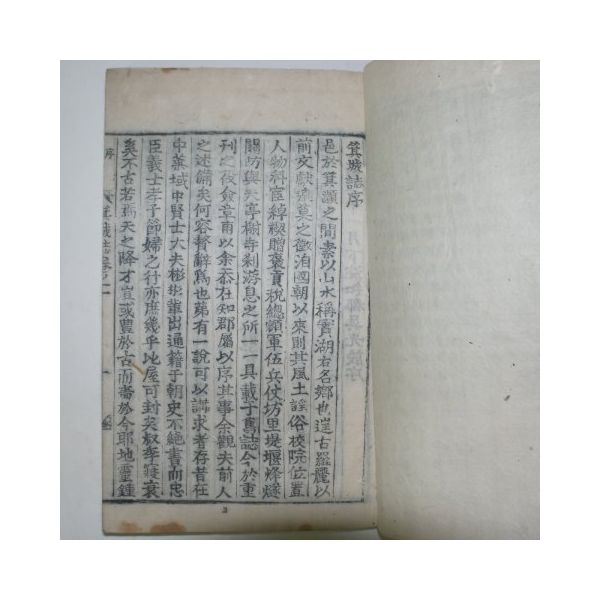 箕城誌序
邑於箕灝之間素以山水稱實湖右名鄉也古羅麗以
前文獻莫之徵洎國朝以來則其風土謠俗校院位置
人物科宦綽楔贈褒貢稅總額軍伍兵仗坊里堤堰烽燧
關防與夫亭榭寺刹游息之所一一具載于舊誌今於重
刊之夜僉章甫以余忝在知郡屬以序其事余觀夫前人
之述備矣何容贅辭爲也第有一說可以講求者存昔在
中葉域中賢士大夫彬彬輩出通籍于朝史不絶書而忠
臣義士孝子節婦之行亦庶幾乎比屋可封矣年寢衰
矣不古若焉天之降才豈或豊於古而嗇於今耶地靈鍾
序 箕城誌卷之一